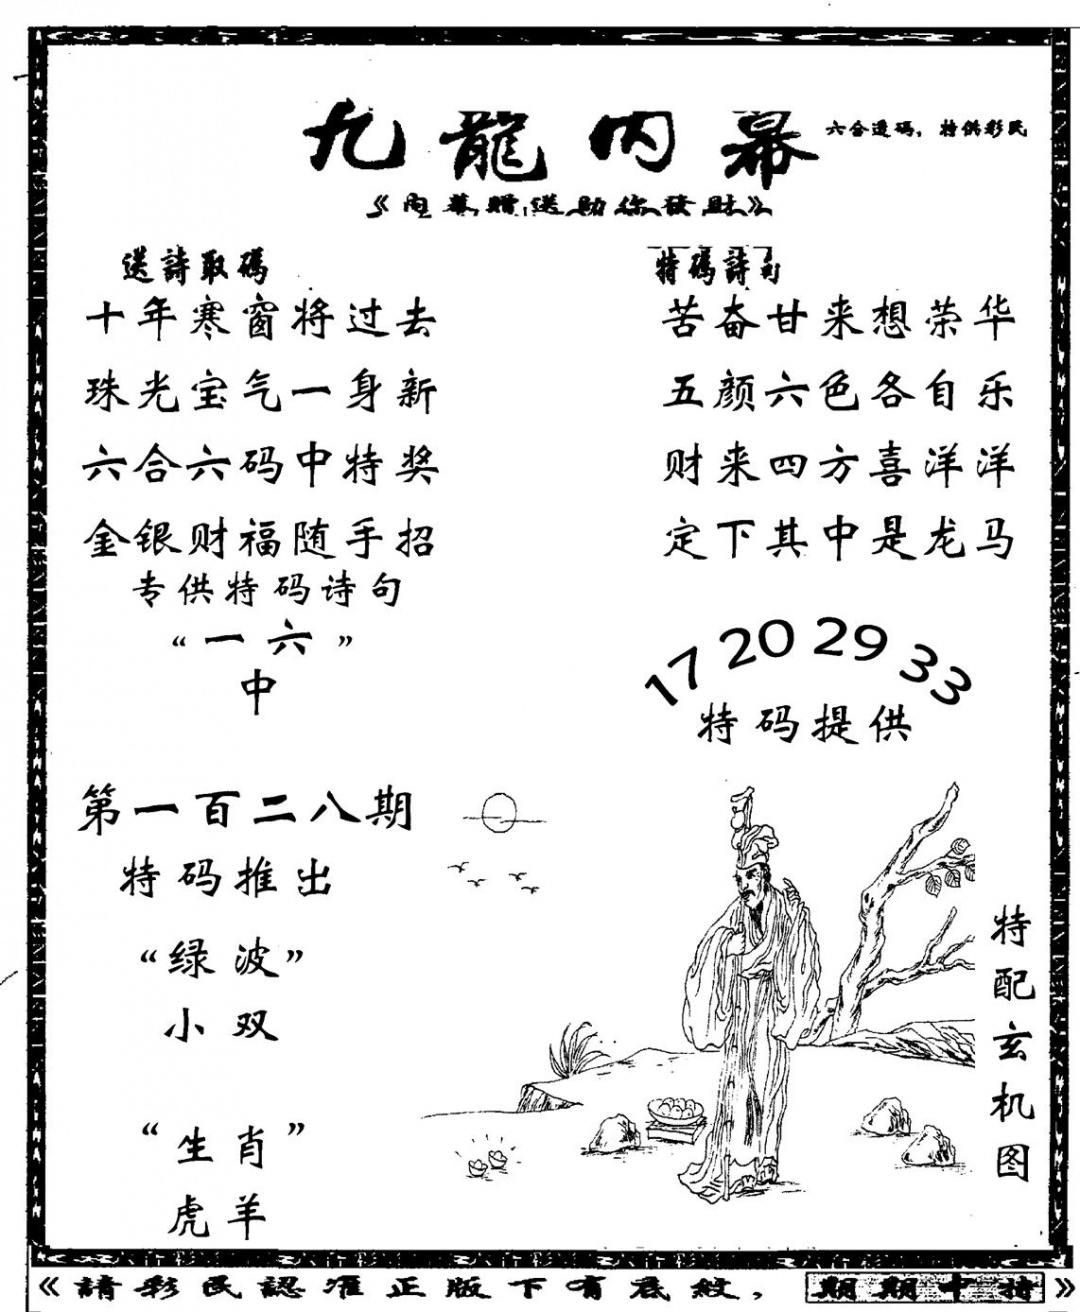 九龍内幕
六合透码，特供彩民
《内幕赠送助你發財》
送詩取碼
十年寒窗将过去
珠光宝气一身新
六合六码中特奖
金银财福随手招
专供特码诗句
“一六”
中
特碼詩句
苦奋甘来想荣华
五颜六色各自乐
财来四方喜洋洋
定下其中是龙马
17 20 29 33
特码提供
第一百二八期
特码推出
“绿波”
小双
“生肖”
虎羊
特配玄机图
《請彩民認准正版下有底紋，期期中特》